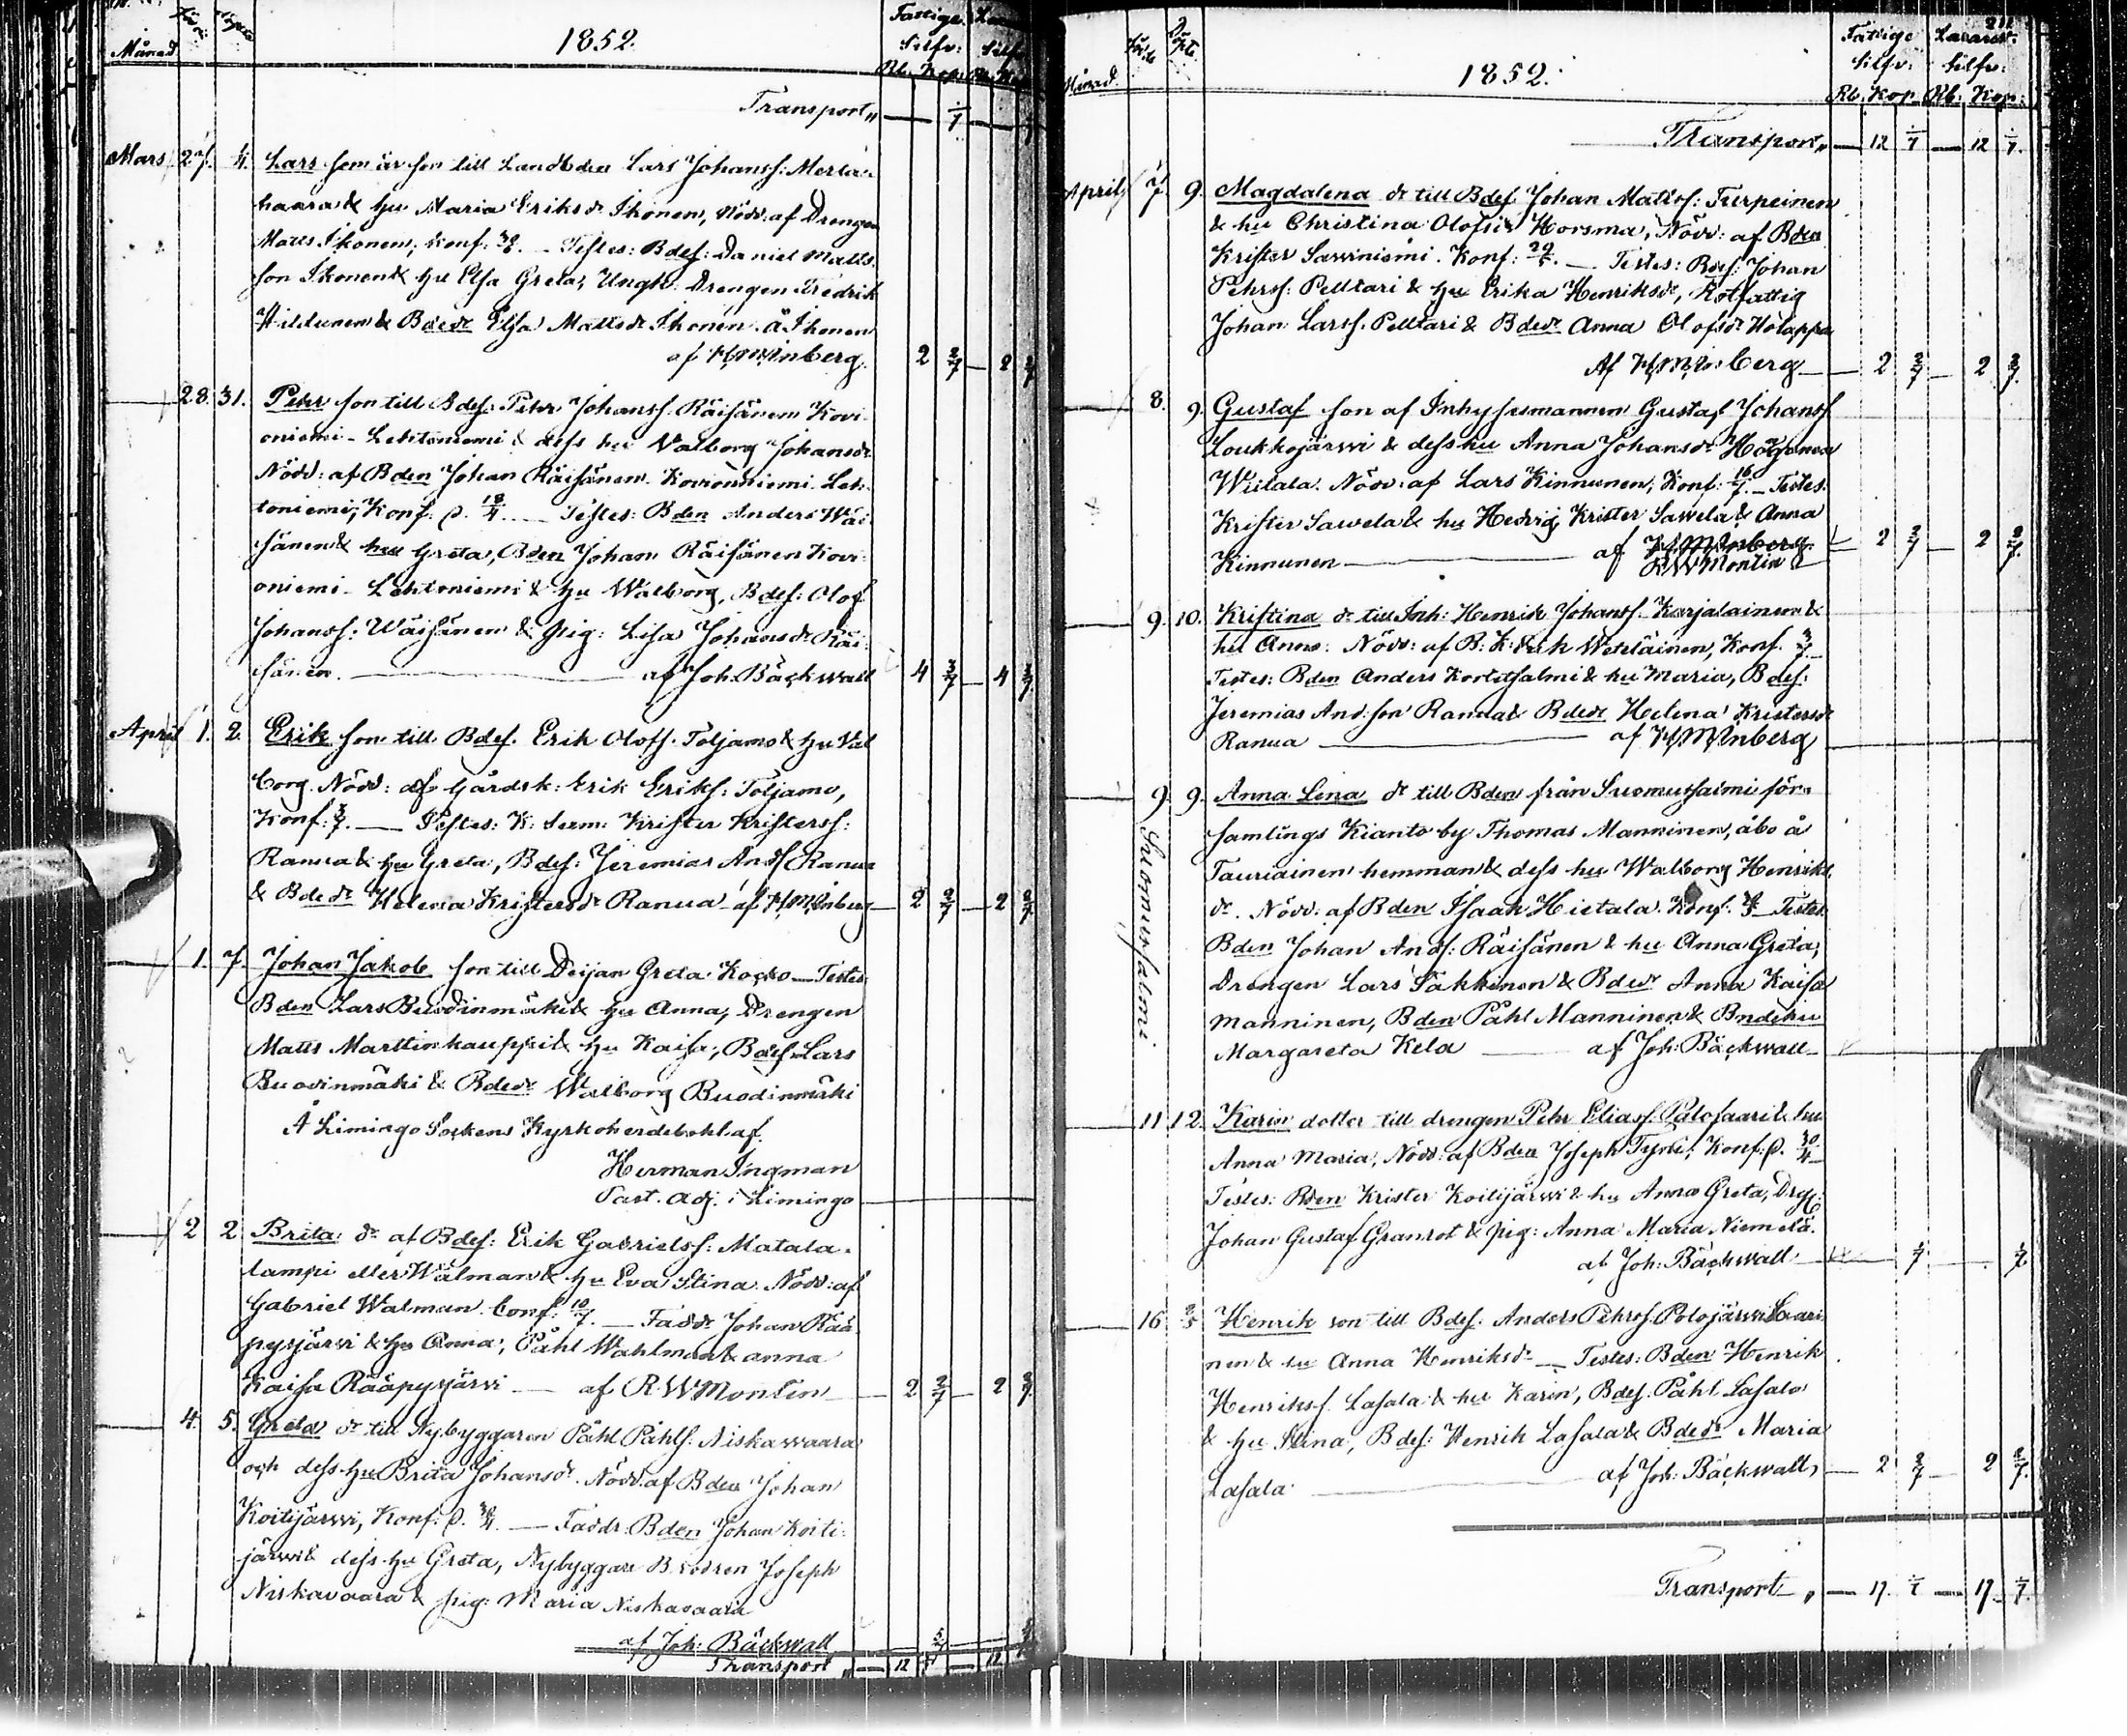 Månad
1852.
Fattige
Silfv:
Rb. Kop.
Transport „
Mars 27. 4. Lars son är son till Landbden Lars Johanss: Merta-
haara & hu Maria Eriksdr Ikonen, Nöd: af Drengen
Matts Ikonen, Konf: Testes: Bdes: Daniel Matts
son Ikonen & hu Elsa Greta, Ungk: Drengen Fredrik
Hildunen & Bdedr Elsa Mattsdr Ikonen å Ikonen
af 2 2/7 2
28. 31. Pehr son till Bdes: Pehr Johanss. Räisänen Kovi
oniemi - Lehtoniemi & dess hu Valborg Johansdr
Nöd: af Bden Johan Räisänen Kovioniemi Leh-
toniemi, Konf: d. 18/4 Testes: Bden Anders Wäi
sänen & hu Greta, Bden Johan Räisänen Kovi
oniemi - Lehtoniemi & hu Walborg, Bdes: Olof
Johanss: Wäisänen & Pig: Lisa Johansdr Räi-
sänen. af Joh: Bäckwall 4 3/7 4 3/7
April 1. 2. Erik son till Bdes. Erik Olofs. Toljamo & hu Val
borg. Nöd: af Gårdsk: Erik Eriks: Toljamo,
Konf: Testes: K: Serm: Krister Kristerss:
Ranua & hu Greta, Bdes: Jeremias Ands Ranua
& Bdedr Helena Kristersdr Ranua af 2 2/7 2 2/7
1. 7. Johan Jakob son till Deijan Greta Kocko Testes
Bden Lars Buodinmäki & hu Anna, Drengen
Matts Marttinkauppi & hu Kaisa, Bdes: Lars
Buodinmäki & Bdedr Walborg Buodinmäki
Å Limingo Sockens Kyrkoherdebohl af
Herman Ingman
Past. Adj. i Limingo
2 2 Brita dr af Bdes: Erik Gabrielss: Matala-
lampi eller Wälman & hu Eva Stina. Nöd: af
Gabriel Walman. Conf: 10/7. Fadd: Johan Rää
pysjärvi & hu Anna, Påhl Wahlman & anna
Kaisa Rääpysjärvi af R W Montin 2 2/7 2 2/7
4. 5. Greta dr till Nybyggaren Påhl Påhls: Niskawaara
och dess hu Brita Johansdr. Nöd: af Bden Johan
Koitijärwi, Konf: d. Faddr: Bden Johan Koiti-
järwi & dess hu Greta, Nybyggare B.sodren Joseph
Niskavaara & pig: Maria Niskavaara
af Joh: Bäckwall
Transport „ 12 12
1852.
Månad.
Fattige Lazaret:
Silfv: Silfv:
Rb. Kop. Rb. Kop:
Transport „ 12 1/7 12 1/7.
April 7. 9. Magdalena dr till Bdes Johan Matts: Turpeinen
& hu Christina Olofsdr Horsma, Nöd: af Bden
Krister Sarviniemi. Konf: Testes: Bdes: Johan
Pehrs: Pelttari & hu Erika Henriksdr, Rotfattig
Johan Larss. Pelttari & Bdedr Anna Olofsdr Holappa
Af 2 2/7 2 2/7.
8. 9. Gustaf son af Inhysesmannen Gustaf Johans
Loukkojärwi & dess hu Anna Johansdr
Wiitala. Nöd: af Lars Kinnunen, Konf: 16/7. Testes:
Krister Sawela & hu Hedvig Krister Sawela & Anna
Kinnunen af R W Montin 2 2/7 2 2/7.
9. 10. Kristina dr till Inh: Henrik Johanss. Karjalainen &
hu Anna. Nöd: af B: K: Erik Weteläinen, Konf.
Testes: Bden Anders Kortetsalmi & hu Maria, Bdes:
Jeremias And:son Randa & Bdedr Helena Kristersdr
Ranua af
9. 9. Anna Lena dr till Bden från Suomussalmi för-
samlings Kianto by Thomas Manninen, åbo å
Tauriainen hemman & dess hu Walborg Henriks
dr. Nöd: af Bden Isaak Hietala. Konf: Testes:
Bden Johan Ands: Räisänen & hu Anna Greta,
Drengen Lars Takkinen & Bdedr Anna Kaisa
Manninen, Bden Påhl Manninen & Bndehu
Margareta Kela af Joh: Bäckwall
Suomussalmi
11 12. Karin dotter till drengen Pehr Eliass. Palosaari & hu
Anna Maria, Nöd: af Bden Joseph Tyni, Konf: d. 30/4
Testes: Bden Krister Koitijärwi & hu Anna Greta, Drg:
Johan Gustaf Granrot & pig: Anna Maria Niemelä.
af Joh: Bäckwall
16 Henrik son till Bdes. Anders Pehrss. Polojärwi
nen & hu Anna Henriksdr Testes: Bden Henrik
Henrikss. Lasala & hu Karin, Bdes. Påhl Lasala
& hu Stina, Bdes: Henrik Lasala & Bdedr Maria
Lasala af Joh: Bäckwall, 2 2/7 2 2/7.
Transport „ 17. 1/7 17 1/7.